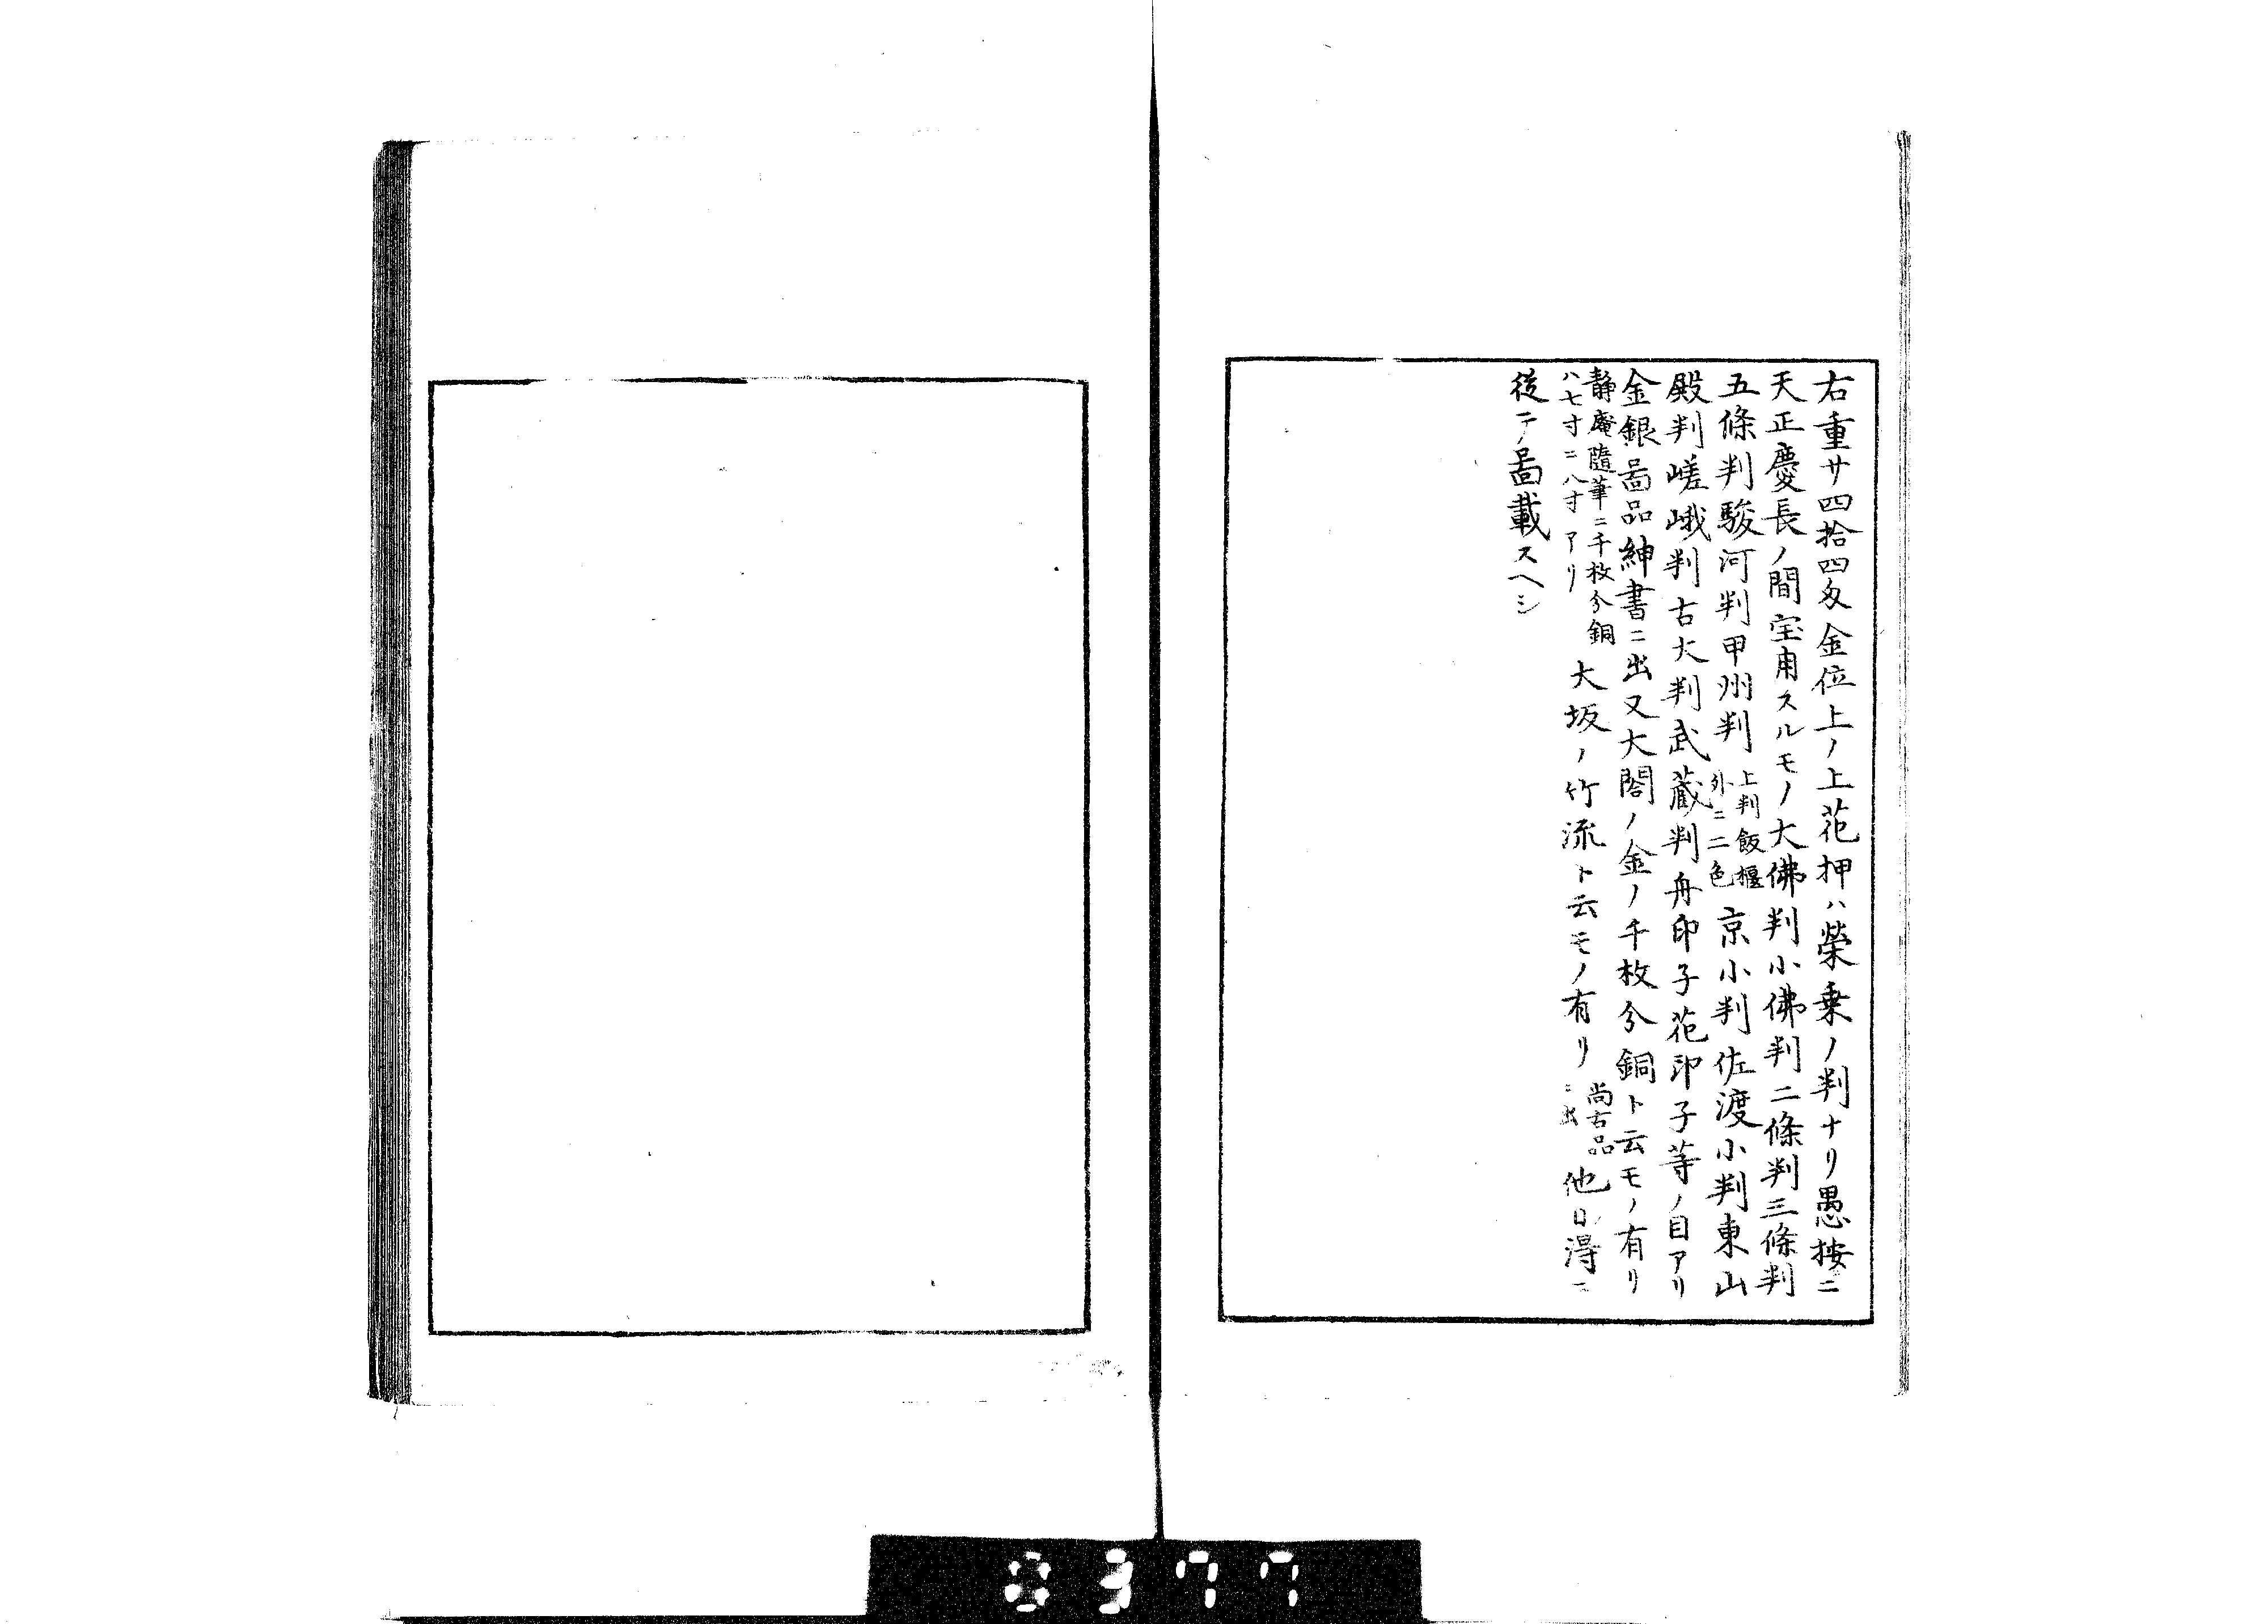 右重サ四拾四匁金位上ノ上花押ハ榮乗ノ判ナリ愚按ニ
天正慶長ノ間宝用スルモノ大佛判小佛判二條判三條判
五條判駿河判甲州判
上判飯堰
外ニ二色
京小判佐渡小判東山
殿判嵯峨判古大判武蔵判舟印子花印子等ノ目アリ
金銀啚品紳書ニ出又大閤ノ金ノ千枚分銅ト云モノ有リ
静庵隨筆ニ千枚分銅
ハ七寸ニ八寸アリ
大坂ノ竹流ト云モノ有リ
尚古品
ニ出
他日淂ニ
従テ啚載スヘシ
0377